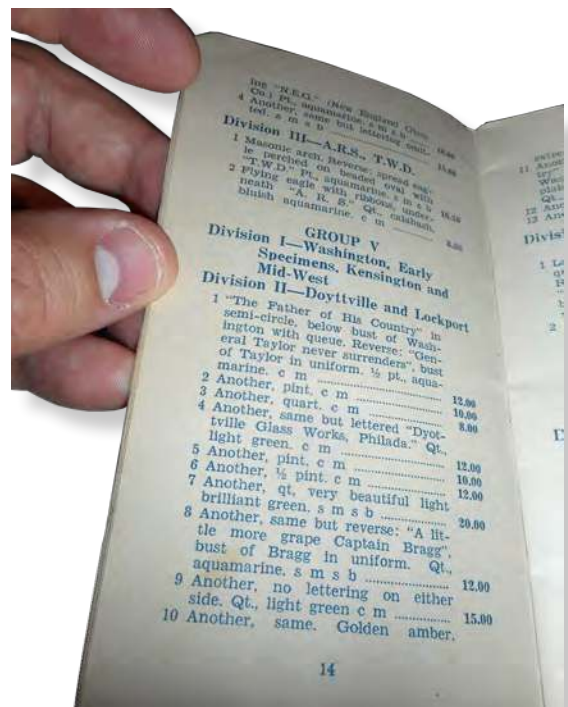 ing "N.E.G." (New England Glass
Co.) Pt., aquamarine. s m s b 10.00
4 Another, same but lettering omit-
ted. s m s b 15.00
Division III—A.R.S., T.W.D.
1 Masonic arch. Reverse: spread eag-
le perched on beaded oval with
"T.W.D." Pt., aquamarine. s m s b
2 Flying eagle with ribbons, under-
neath "A. R. S." Qt., calabash,
bluish aquamarine. c m 8.00
GROUP V
Division I—Washington, Early
Specimens, Kensington and
Mid-West
Division II—Doyttville and Lockport
1 "The Father of His Country" in
semi-circle, below bust of Wash-
ington with queue. Reverse: "Gen-
eral Taylor never surrenders", bust
of Taylor in uniform. ½ pt., aqua-
marine. c m 12.00
2 Another, pint. c m 10.00
3 Another, quart. c m 8.00
4 Another, same but lettered "Dyot-
tville Glass Works, Philada." Qt.,
light green. c m 12.00
5 Another, pint. c m 10.00
6 Another, ½ pint. c m 12.00
7 Another, qt, very beautiful light
brilliant green. s m s b 20.00
8 Another, same but reverse: "A lit-
tle more grape Captain Bragg",
bust of Bragg in uniform. Qt.,
aquamarine. s m s b 12.00
9 Another, no lettering on either
side. Qt., light green c m 15.00
10 Another, same. Golden amber,
14